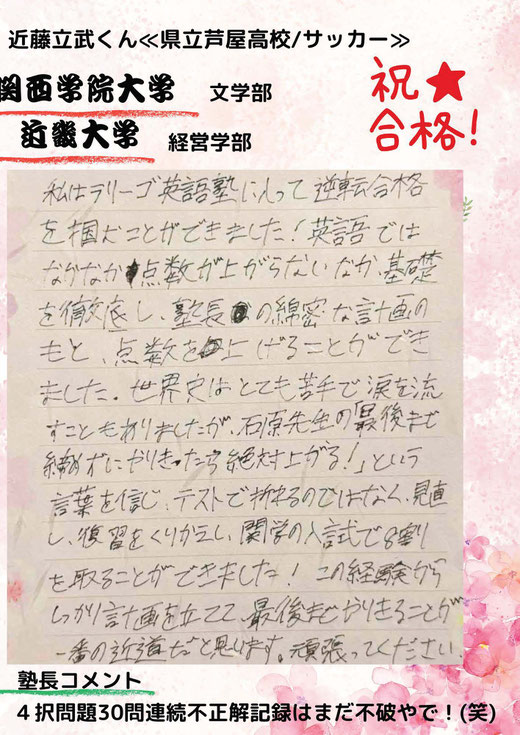 近藤立武くん≪県立芦屋高校/サッカー≫
関西学院大学 文学部
近畿大学 経営学部
祝★
合格!
私はラリーゴ英語塾に入って逆転合格
を掴むことができました!英語では
なかなか点数が上がらないなか、基礎
を徹底し、塾長の綿密な計画の
もと、点数を上げることができ
ました。世界史はとても苦手で涙を流
すこともありましたが、石原先生の「最後まで
諦めずにやりきったら絶対上がる!」という
言葉を信じ、テストで折れるのではなく、見直
し、復習をくりかえし、関学の入試で8割
を取ることができました!この経験から
しっかり計画を立てて、最後までやりきることが
一番の近道だと思います。頑張ってください
塾長コメント
4択問題30問連続不正解記録はまだ不破やで!(笑)